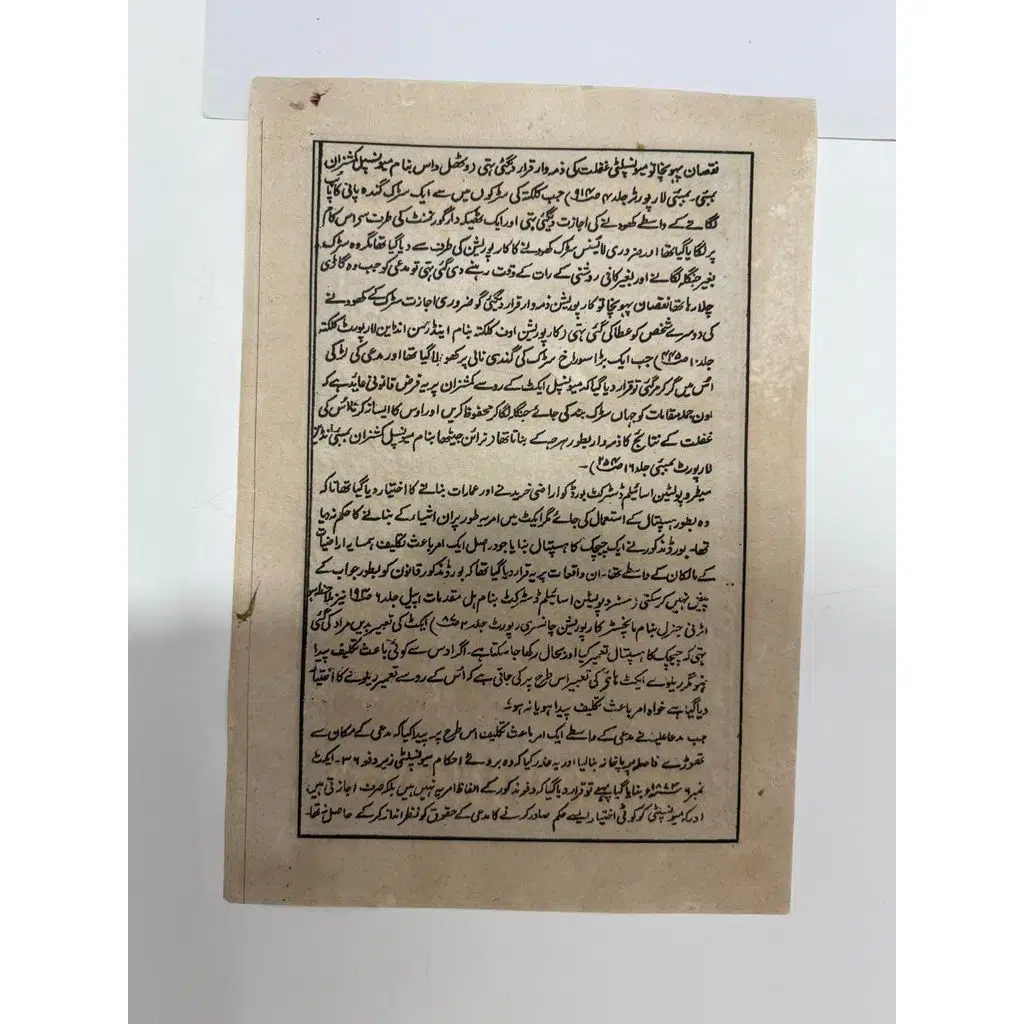 نقصان پہونچا تو میونسپلٹی غفلت کی ذمہ وار قرار دیگئی ہتی (وٹھل داس بنام میونسپل کمشنران
بمبئی۔ بمبئی لارپورٹر جلد ۴ ص۹۱۴) جب کلکتہ کی سڑکوں میں سے ایک سڑک گندہ پانی کا پائپ
لگانے کے واسطے کھودنے کی اجازت دیگئی ہتی اور ایک ٹھیکہ دار گورنمنٹ کی طرف سے اس کام
پر لگایا گیا تھا اور ضروری لائیسنس سڑک کھودنے کا کارپوریشن کی طرف سے دیا گیا تھا مگر وہ سڑک
بغیر جنگلہ لگانے اور بغیر کافی روشنی کے رات کے وقت رہنے دی گئی ہتی تو مدعی کو جب وہ گاڑی
چلا رہا تھا نقصان پہونچا تو کارپوریشن ذمہ وار قرار دیگئی گو ضروری اجازت سڑک کے کھودنے
کی دوسرے شخص کو عطا کی گئی ہتی (کارپوریشن اوف کلکتہ بنام اینڈرسن انڈین لارپورٹ کلکتہ
جلد ۱۰ ص۴۴۵) جب ایک بڑا سوراخ سڑک کی گندی نالی پر کھولا گیا تھا اور مدعی کی لڑکی
اس میں گر کر مر گئی تو قرار دیا گیا کہ میونسپل ایکٹ کے روسے کمشنران پر یہ فرض قانونی عاید ہے کہ
اون جملہ مقامات کو جہاں سڑک بند کی جائے جنگلہ لگا کر محفوظ کریں اور اوس کا ایسا نہ کرنا اس کی
غفلت کے نتائج کا ذمہ وار بطور ہرجہ کے بناتا تھا (نرائن جیٹھا بنام میونسپل کمشنران بمبئی انڈین
لارپورٹ بمبئی جلد ۱۶ ص۲۵۴)۔
میٹروپولیٹین اسائیلم ڈسٹرکٹ بورڈ کو اراضی خریدنے اور عمارات بنانے کا اختیار دیا گیا تھا تاکہ
وہ بطور ہسپتال کے استعمال کی جائے مگر ایکٹ میں امریہ طور پر ان اشیاء کے بنانے کا حکم نہ دیا
تھا۔ بورڈ مذکور نے ایک چیچک کا ہسپتال بنایا جو دراصل ایک امر باعث تکلیف ہمسایہ اراضیات
کے مالکان کے واسطے تھا۔ ان واقعات پر یہ قرار دیا گیا تھا کہ بورڈ مذکور قانون کو بطور جواب کے
پیش نہیں کر سکتی (میٹروپولیٹن اسائیلم ڈسٹرکٹ بنام ہل مقدمات اپیل جلد ۶ ص۱۹۳ نیز ملاحظہ ہو
اٹرنی جنرل بنام مانچسٹر کارپوریشن چانسری رپورٹ جلد ۲ ص۸۷) ایکٹ کی تعبیر بدیں مراد کی گئی
ہتی کہ چیچک کا ہسپتال تعمیر کیا اور بحال رکھا جا سکتا ہے۔ اگر اوس سے کوئی باعث تکلیف پیدا
نہو مگر ریلوے ایکٹ کی تعبیر اس طرح پر کی جاتی ہے کہ اس کے روسے تعمیر ریلوے کا اختیار
دیا گیا ہے خواہ امر باعث تکلیف پیدا ہو یا نہ ہو۔
جب مدعا علیہ نے مدعی کے واسطے ایک امر باعث تکلیف اس طرح پر پیدا کیا کہ مدعی کے مکان سے
تھوڑے فاصلہ پر پاخانہ بنا لیا اور یہ عذر کیا کہ وہ بروئے احکام میونسپلٹی زیر دفعہ ۳۶۔ ایکٹ
نمبر ۶ ۱۸۷۳ء بنایا گیا ہے تو قرار دیا گیا کہ دفعہ مذکور کے الفاظ امریہ نہیں ہیں بلکہ صرف اجازتی ہیں
اور کہ میونسپلٹی کو کوئی اختیار ایسے حکم صادر کرنے کا مدعی کے حقوق کو نظر انداز کر کے حاصل نہ تھا۔